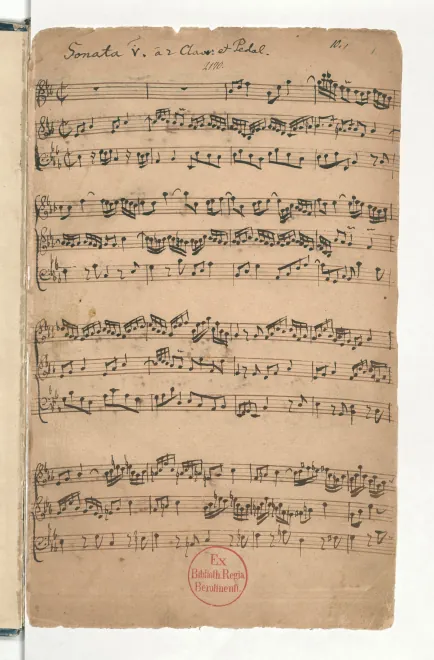 Sonata 1. à 2 Clav: et Pedal.
Ex
Biblioth. Regia
Berolinensi.